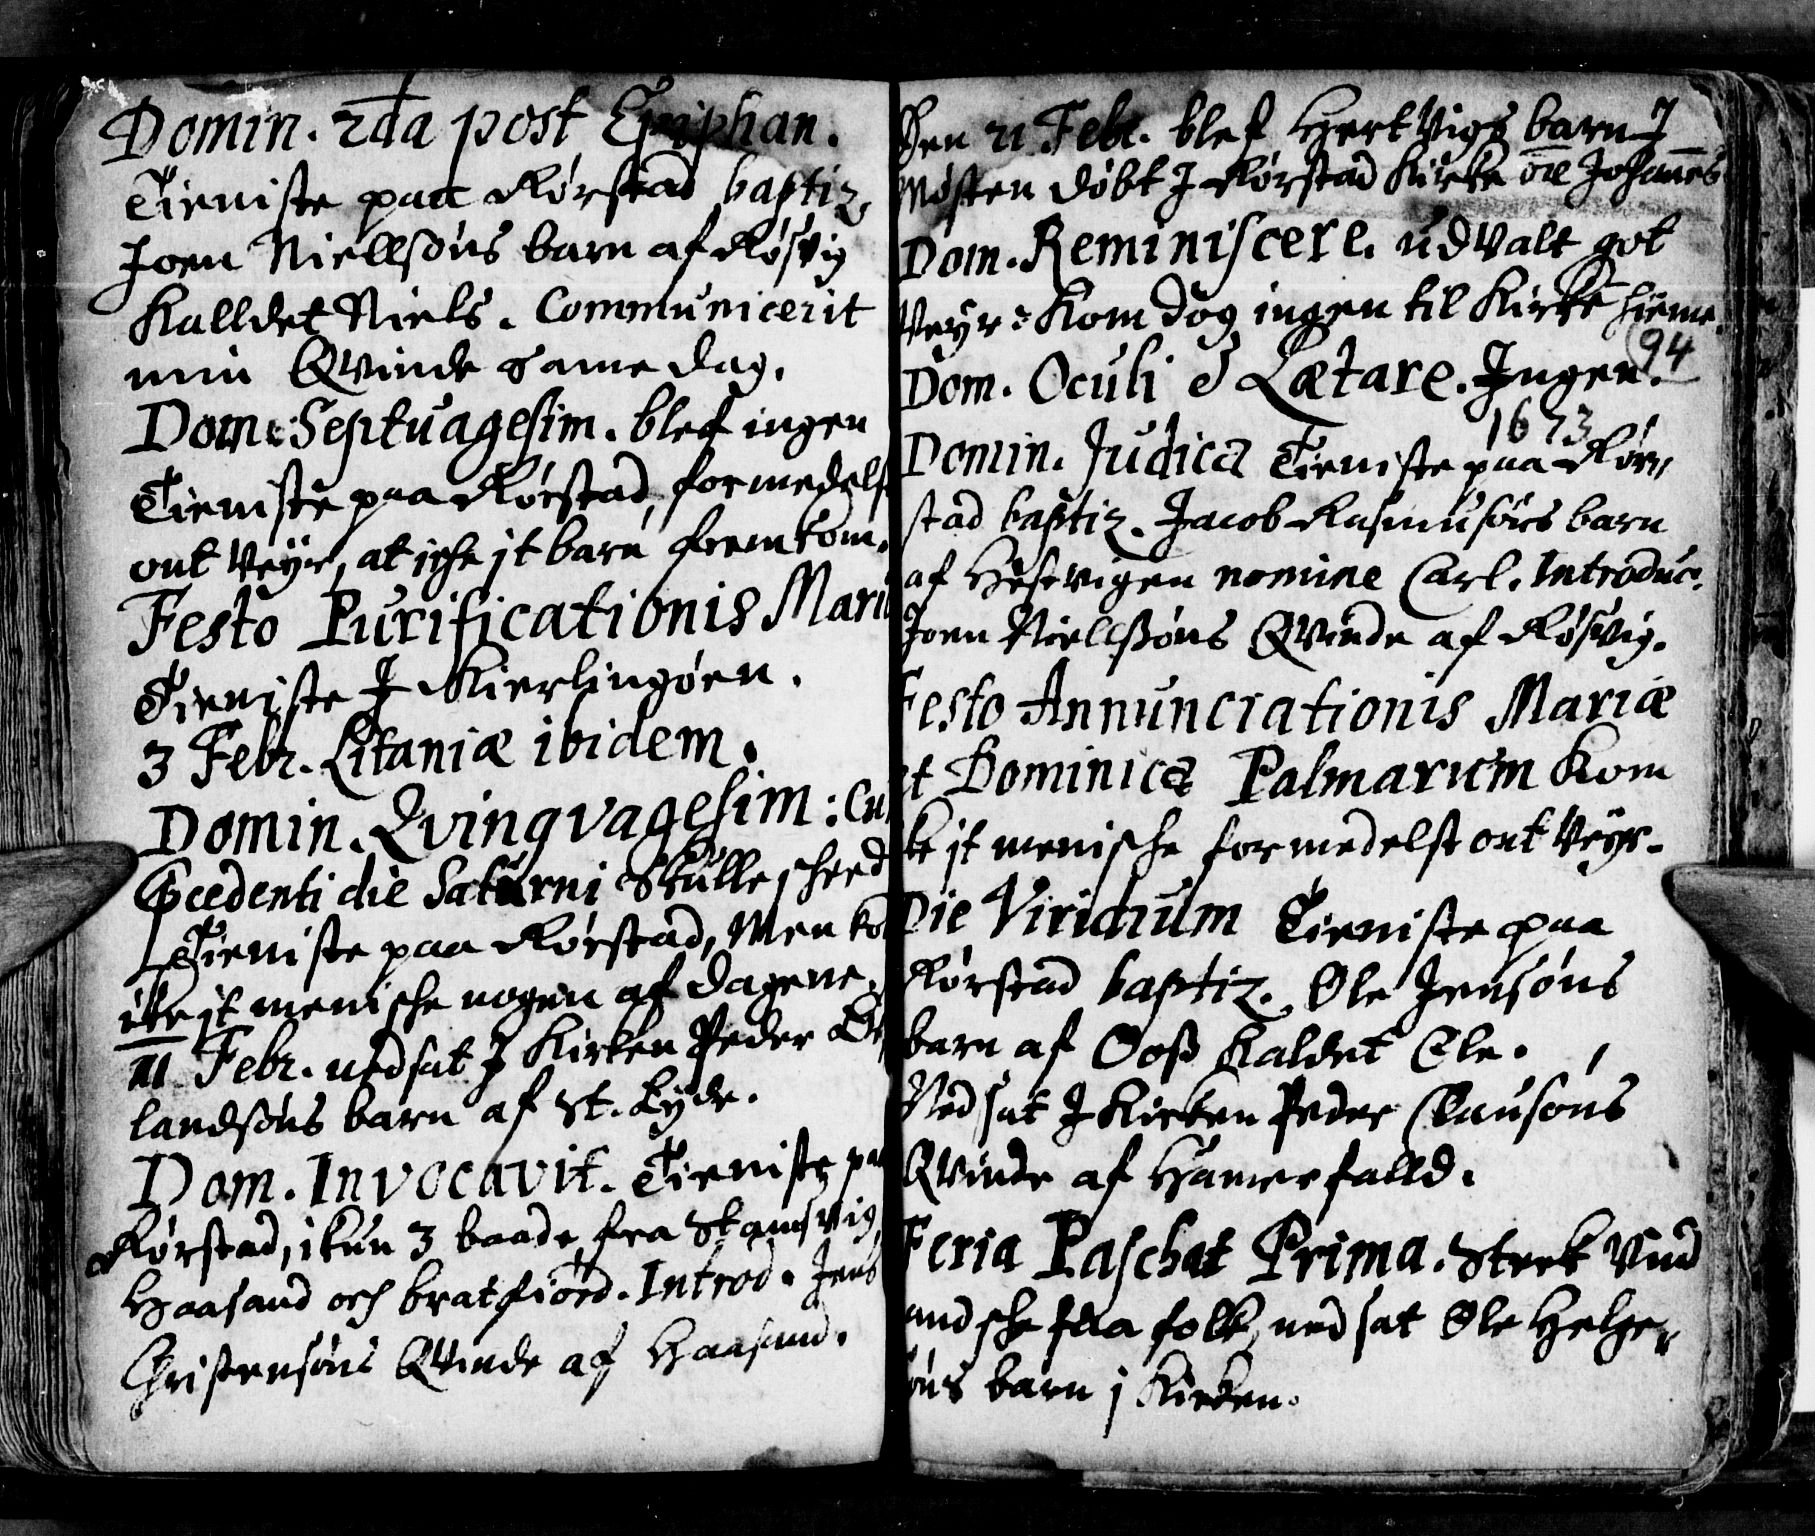 Domin. 2da post Epiphan.
Tieniste paa Rørstad baptiz.
Joen Niellsøns barn af Røsvig
Kalldet Niels. Communicerit
min Qvinde same dag.
Dom. Septuagesim. blef ingen
Tieniste paa Rørstad, formedelst
ont Veyr, at iche it barn fremkom.
Festo Purificationis Mariæ
Tieniste I Kierlingøen.
3 Febr. Litaniæ ibidem.
Domin. Qvinqvagesim: cu
Præcedenti die Saturni Skulle scheed
Tieniste paa Rørstad, Men kom
icke it menische nogen af dagene.
11 Febr. nedsat I Kirken Peder
landsøns barn af St. Lyde.
Dom. Invocavit. Tieniste paa
Rørstad, ikun 3 baade fra Stamsvig,
Haasand och bratfiord. Introd. Jens
Christensøns Qvinde af Haasand.
Den 21 Febr. blef HertVigs barn I
Møsten døbt I Rørstad Kircke Johannes
Dom. Reminiscere. udvalt got
Veyr: Kom dog ingen til Kircke hieme.
94
Dom. Oculi & Lætare. Ingen.
1673
Domin. Judica Tieniste paa Rør-
stad baptiz. Jacob Rasmusøns barn
af Hestvigen nomine Carl. Introduc.
Joen Niellsøns Qvinde af Røsvig.
Festo Annunciationis Mariæ
et Dominica Palmarum Kom
ke it menische formedelst ont Veyr.
Die Viridium Tieniste paa
Rørstad baptiz. Ole Jensøns
barn af Ooss Kaldet Ole.
Nedsat I Kirken Peder Clausøns
Qvinde af Hamerfalld.
Feria Paschat Prima. Sterk Vind
and sche faa folk, nedsat Ole Helge-
søns barn i Kirken.